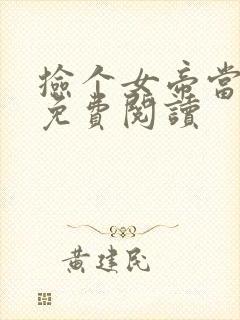 撿个女帝當
免費閱讀
黃建民